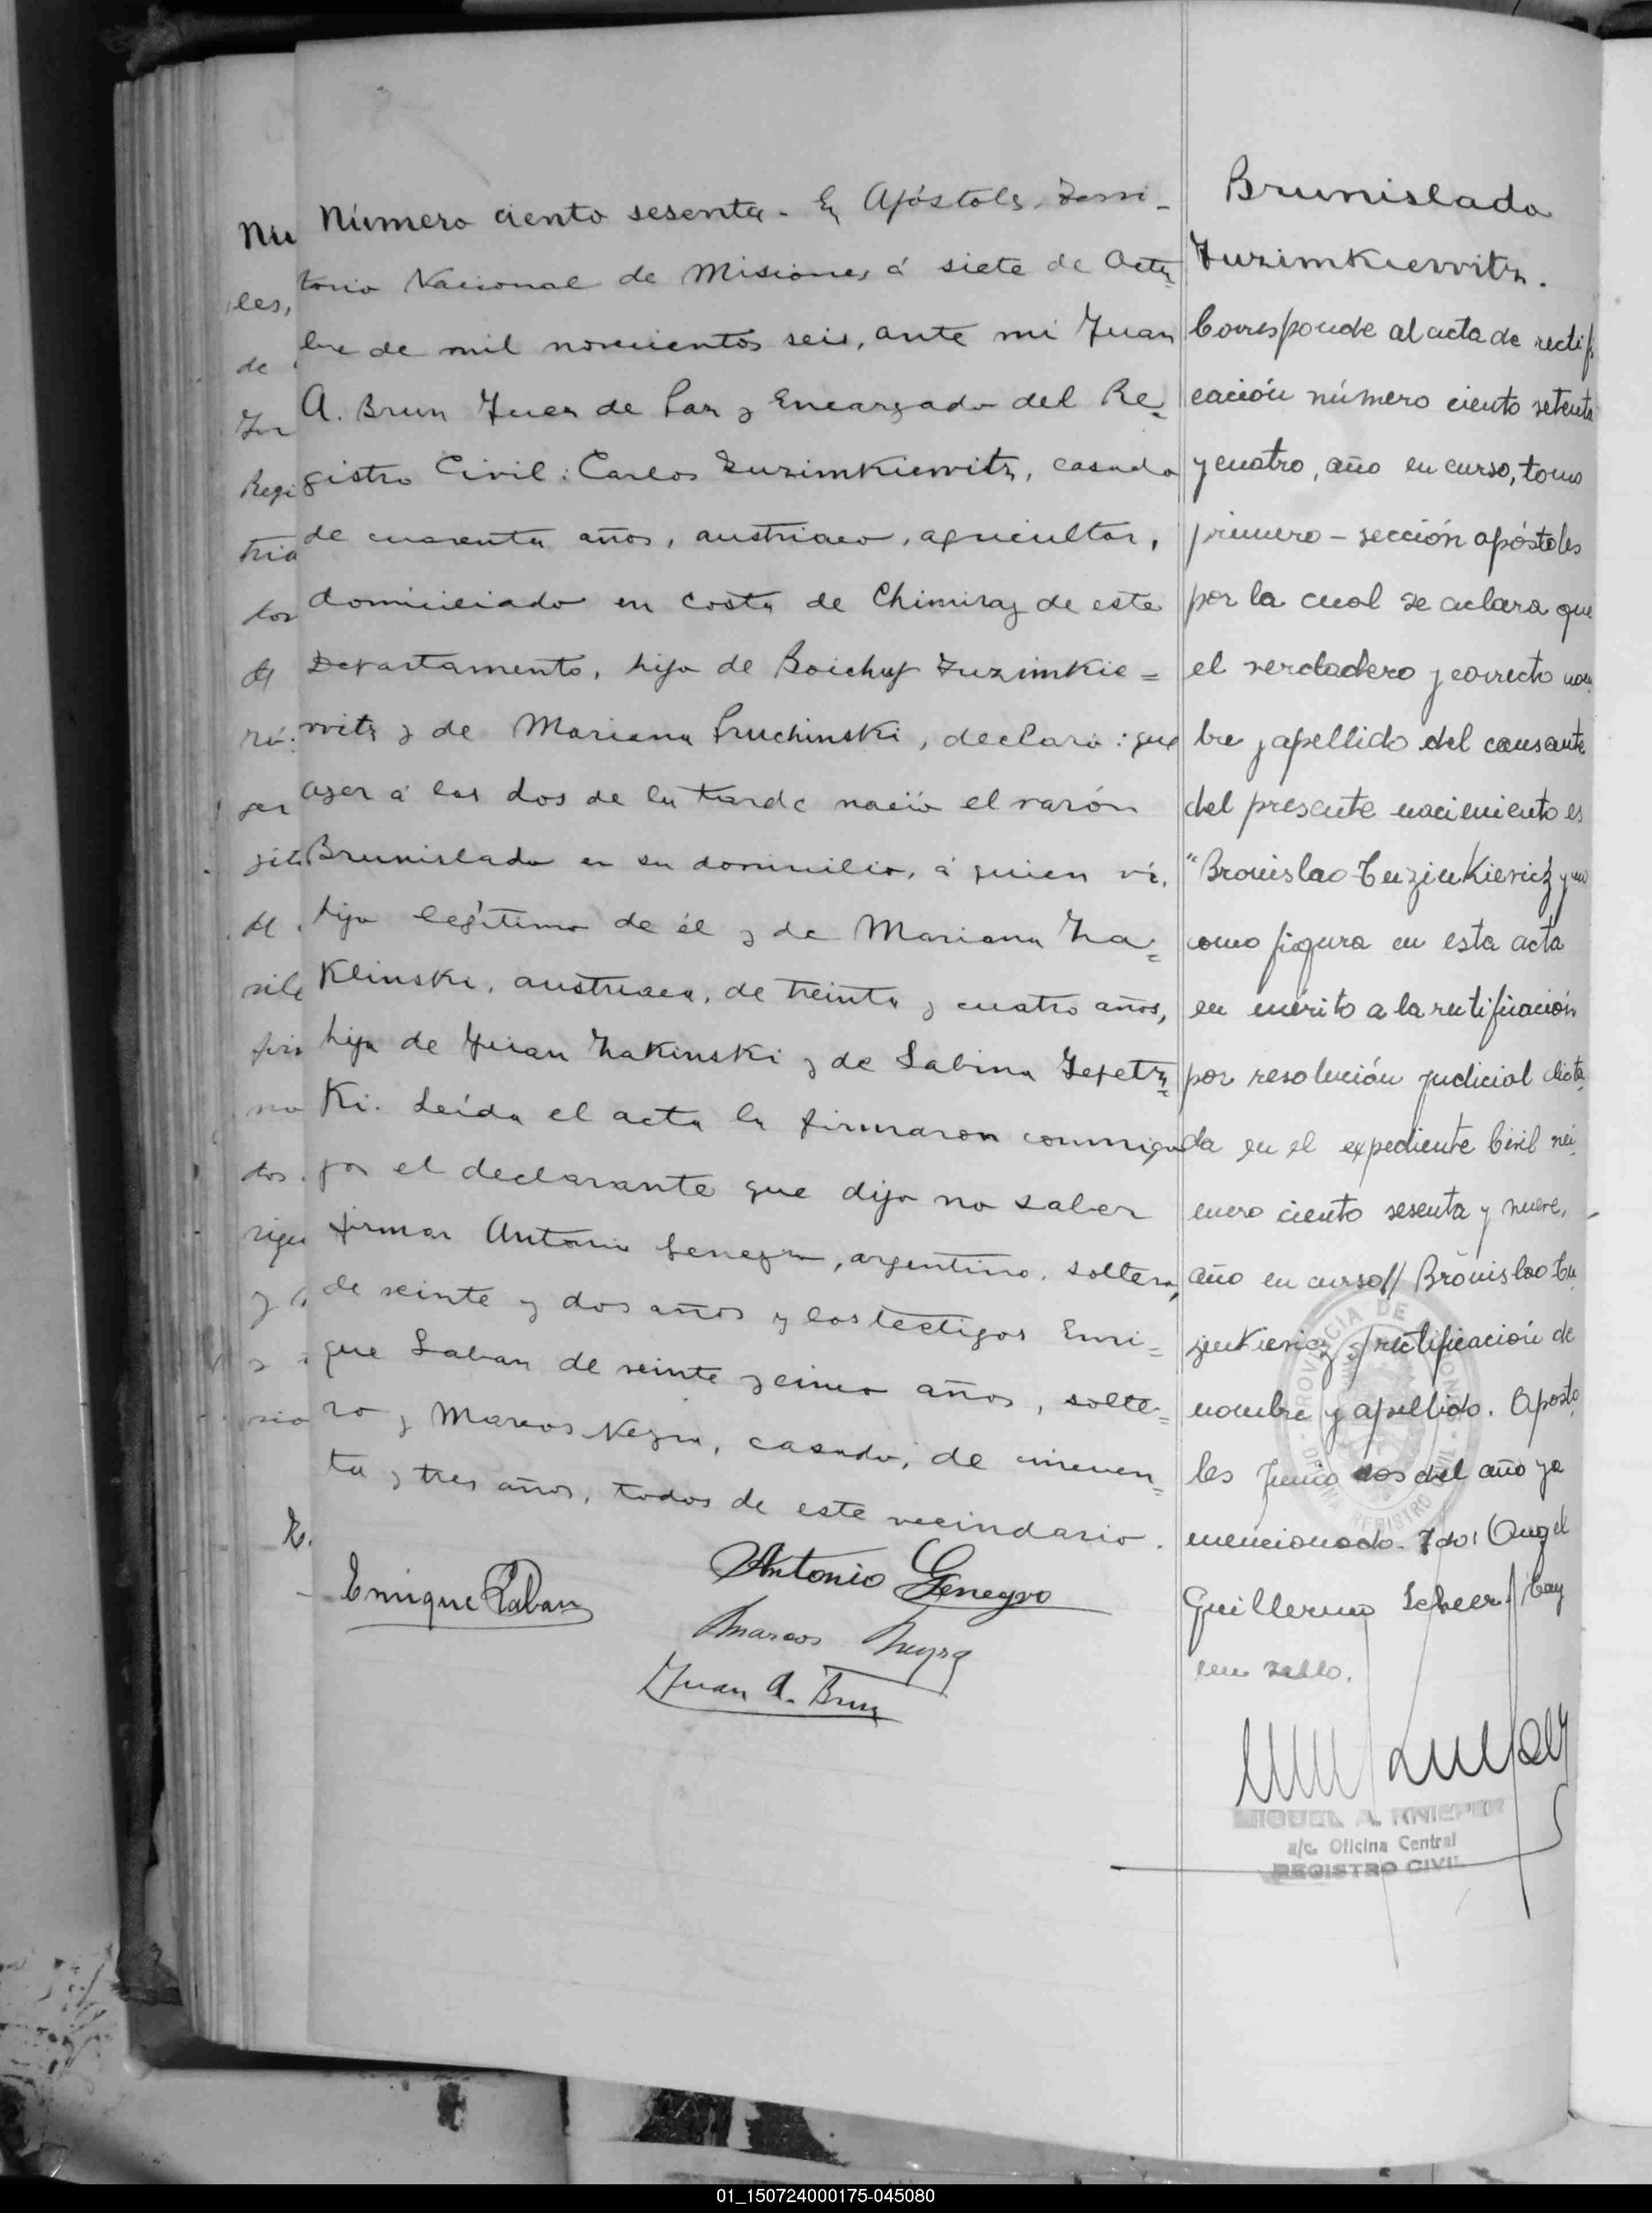 Número ciento sesenta. En Apóstoles, Terri-
torio Nacional de Misiones á siete de Octu-
bre de mil novecientos seis, ante mi Juan
A. Brun Juez de Paz y Encargado del Re-
gistro Civil: Carlos Zuzimkiewitz, casado
de cuarenta años, austriaco, agricultor,
domiciliado en costa de Chimiray de este
Departamento, hijo de Zuzimkie=
witz y de Mariana Pruchinski, declaró: que
ayer á las dos de la tarde nació el varón
Brunislado en su domicilio, á quien ví,
hijo legítimo de él y de Mariana Za=
Klinski, austriaca, de treinta y cuatro años,
hija de Juan Zakinski y de Sabina
Ki. Leída el acta la firmaron conmigo
por el declarante que dijo no saber
firmar Antonio Genegro, argentino, soltero,
de veinte y dos años y los testigos Enri=
que Laban de veinte y cinco años, solte=
ro y Marcos Negra, casado, de cincuen=
ta y tres años, todos de este vecindario.
Enrique Laban
Antonio Genegro
Marcos
Juan A. Brun
Brunislado
Zuzimkiewitz.
Corresponde al acta de rectifi
cación número ciento setenta
y cuatro, año en curso, tomo
primero – sección apóstoles
por la cual se aclara que
el verdadero y correcto nom
bre y apellido del causante
del presente nacimiento es
"Bronislao Tuzinkievicz y no
como figura en esta acta
en mérito a la rectificación
por resolución judicial dicta
da en el expediente Civil nú
mero ciento sesenta y nueve,
año en curso// Bronislao Tu
zinkievicz s/rectificación de
nombre y apellido. Aposto
les Junio dos del año ya
mencionado. Fdo: Angel
Guillermo Scheer/ hay
un sello.
MIGUEL A. KNIEPER
a/c. Oficina Central
REGISTRO CIVIL
01_150724000175-045080